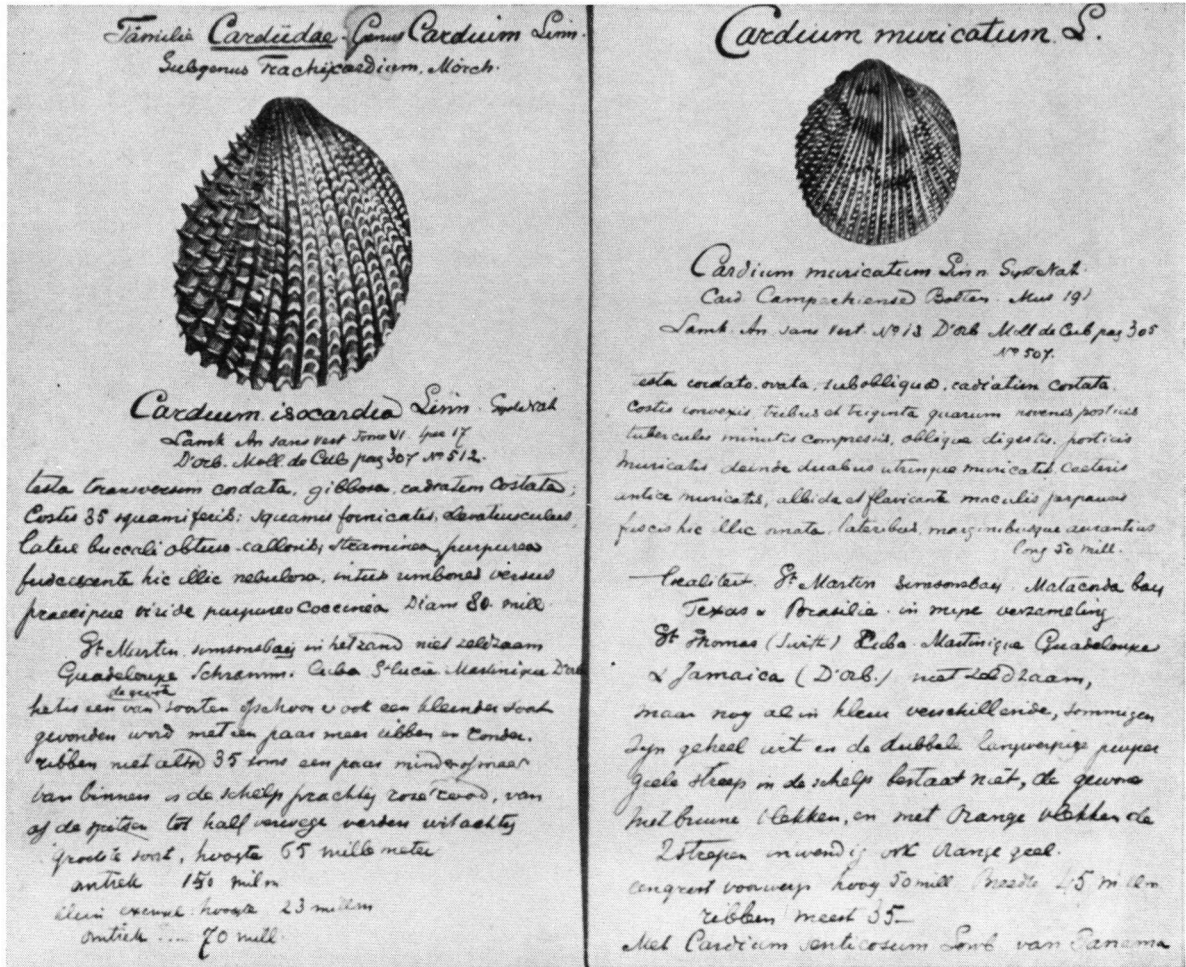 Familia Cardiidae. Genus Cardium Linn.
Subgenus Trachijcardium. Mörch.
Cardium isocardia Linn. Syst. Nat
Lamk An sans vert Tome VI. 17
D'orb. Moll de Cub pag 307 No 512.
testa transversim cordata, gibbosa, radiatim Costata;
Costis 35 squamiferis; squamis fornicatis,
latere buccali obtuso straminea, purpurea
hic illic nebulosa, intus umbones versus
praecipue purpureo Coccinea Diam 80. mill.
St Martin simsonsbaij in het zand niet zeldzaam
Guadeloupe Schramm. Cuba St Lucie Martinique
de grote
het is een van soorten ofschoon er ook een kleinder soort
gevonden word met een paar meer ribben en ronder.
ribben niet altyd 35 soms een paar minder of meer
van binnen is de schelp prachtig rosé rood, van
af de spitsen tot half verwege verders witachtig
grootste soort, hoogte 65 millemeter
omtrek 150 milm
klein hoogte 23 millm
omtrek .... 70 mill.
Cardium muricatum. L.
Cardium muricatum Linn Syst Nat.
Card Campechiense Bolten. Mus 191
Lamk. An. sans vert. No 13 D'orb Moll de Cub pag 305
No 507.
testa cordato ovata, subobliqua, radiatim costata
costis convexis, tribus et triginta quarum novenis posticis
tuberculis minutis compressis, oblique digestis, posticis
muricatis deinde duabus utrinque muricatis caeteris
antice muricatis, albida et flavicante maculis
fuscis hic illic ornata, lateribus, marginibusque aurantiis
long 50 mill.
Localiteit. St Martin simsonsbay. Matagorda bay
Texas & Brasilia. in mijne verzameling
St Thomas (Swift) Cuba. Martinique Guadeloupe
& Jamaica (D'orb.) niet zeldzaam,
maar nog al in kleur verschillende, sommigen
zijn geheel wit en de dubbele langwerpige purper
geele streep in de schelp bestaat niet, de gewone
met bruine vlekken, en met Orange vlekken de
2 strepen inwendig ook Orange geel.
een groot voorwerp hoog 50 mill. Breedte 45 millm.
ribben meest 35
Met Cardium senticosum Sowb van Panama